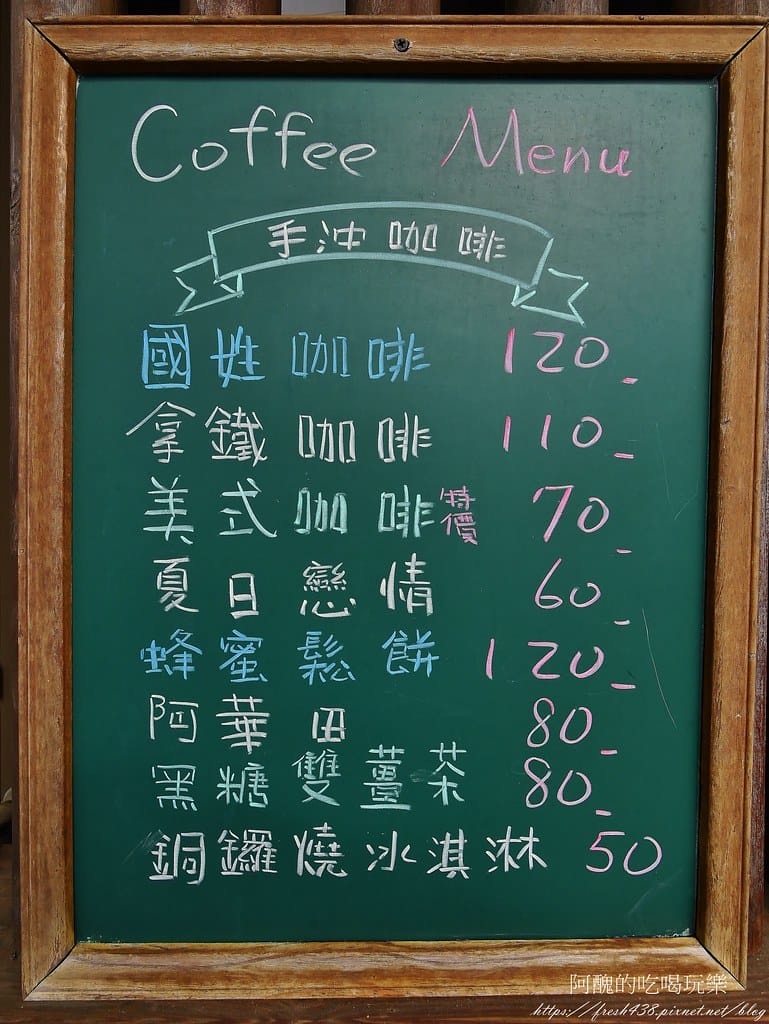 Coffee Menu
手沖咖啡
國姓咖啡 120
拿鐵咖啡 110
美式咖啡 特價 70
夏日戀情 60
蜂蜜鬆餅 120
阿華田 80
黑糖雙薑茶 80
銅鑼燒冰淇淋 50
阿醜的吃喝玩樂
https://fresh438.pixnet.net/blog